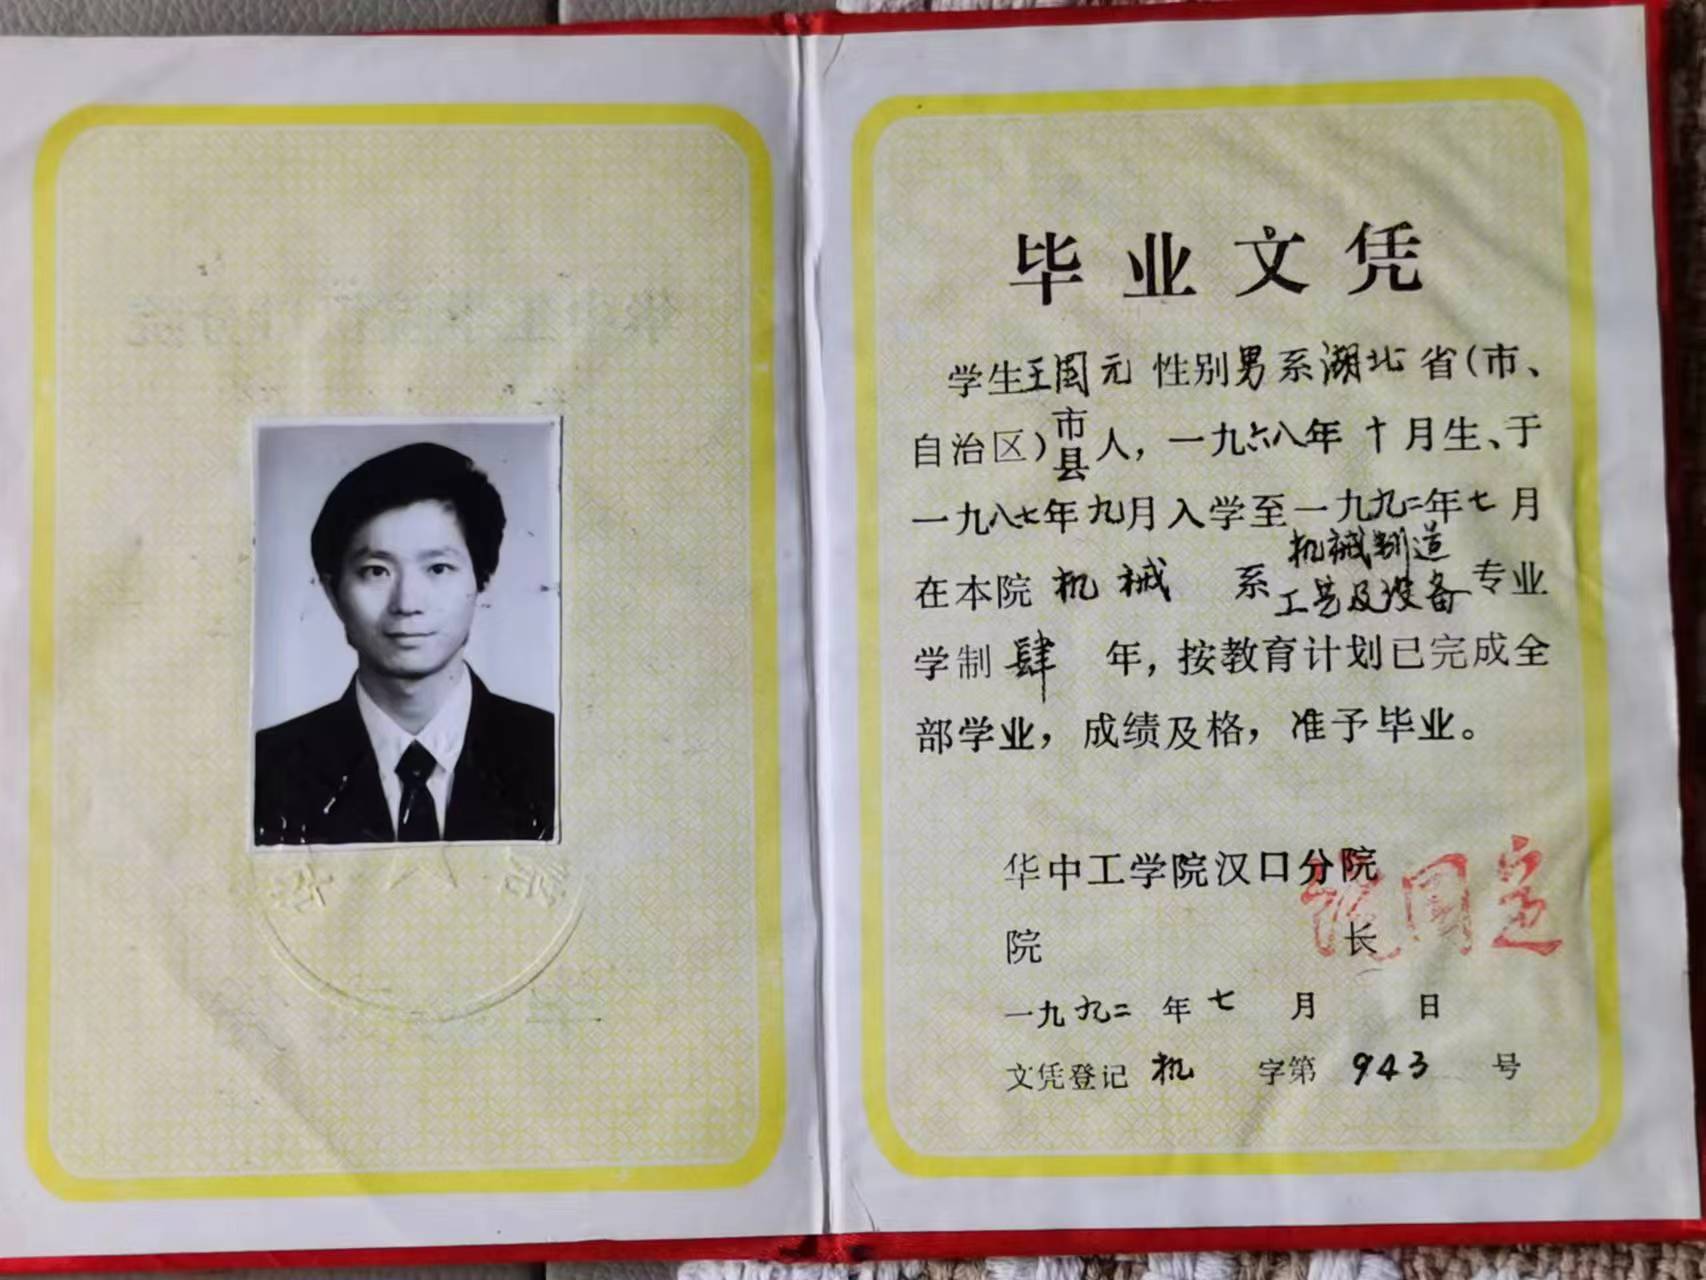 毕业文凭
学生王国元 性别男系湖北省(市、
自治区)市县人,一九六八年十月生、于
一九八七年九月入学至一九九二年七月
在本院机械 系机械制造工艺及设备专业
学制肆 年,按教育计划已完成全
部学业,成绩及格,准予毕业。
华中工学院汉口分院
院 长
一九九二 年七 月 日
文凭登记机 字第 943 号